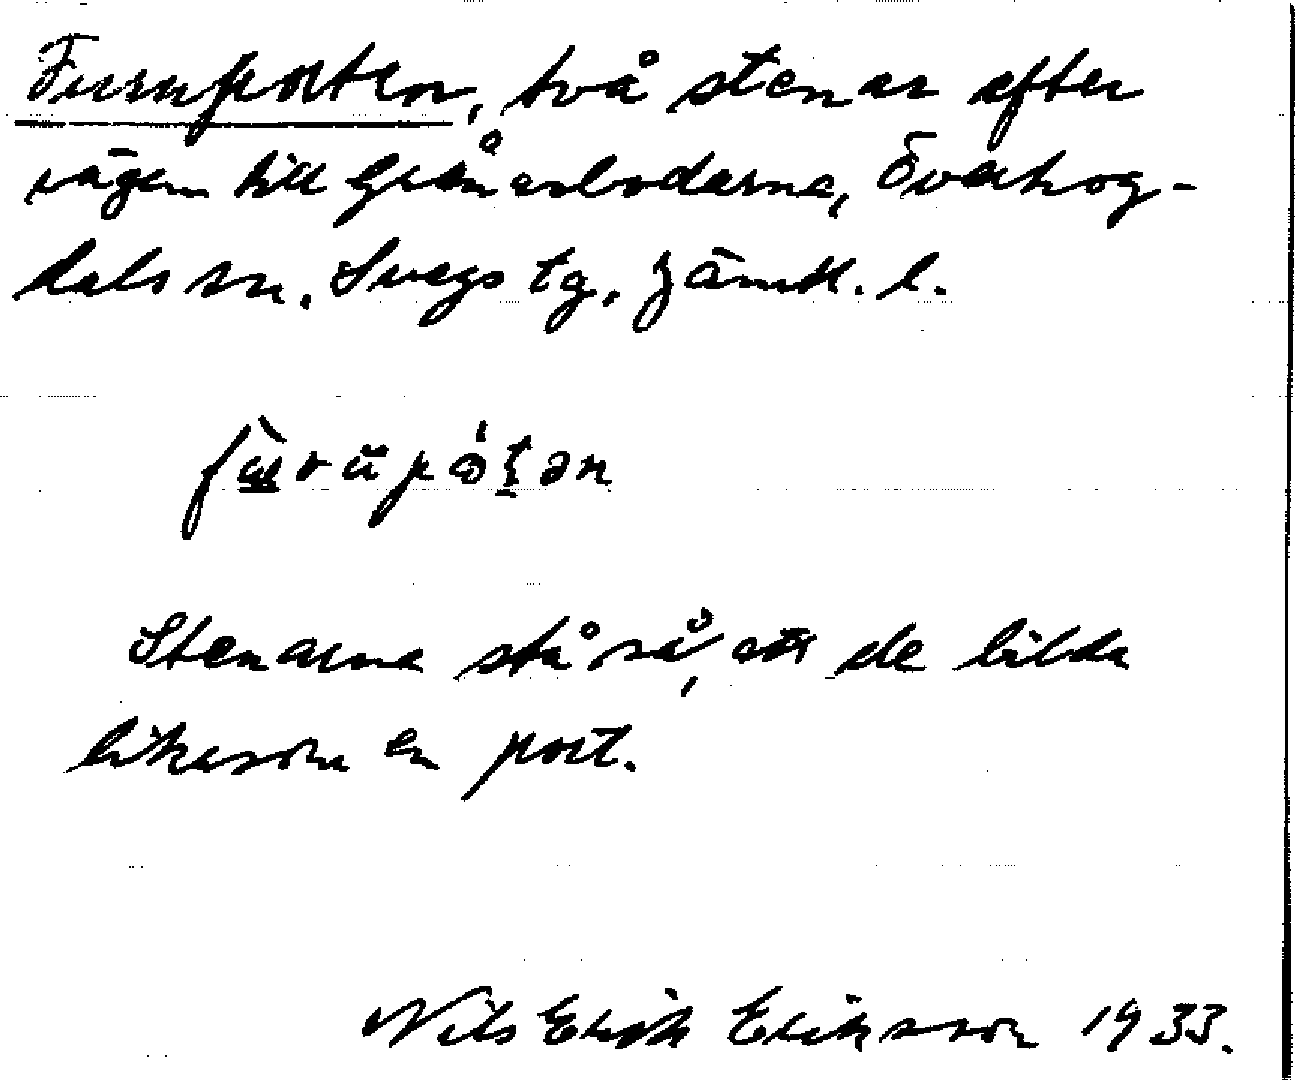 Furuporten, två stenar efter
vägen till Grånarbodarna, Överhog-
dals sn. Svegs tg, Jämtl. l.
Stenarna stå så, att de bilda
likasom en port.
Nils Erik Eriksson 1933.